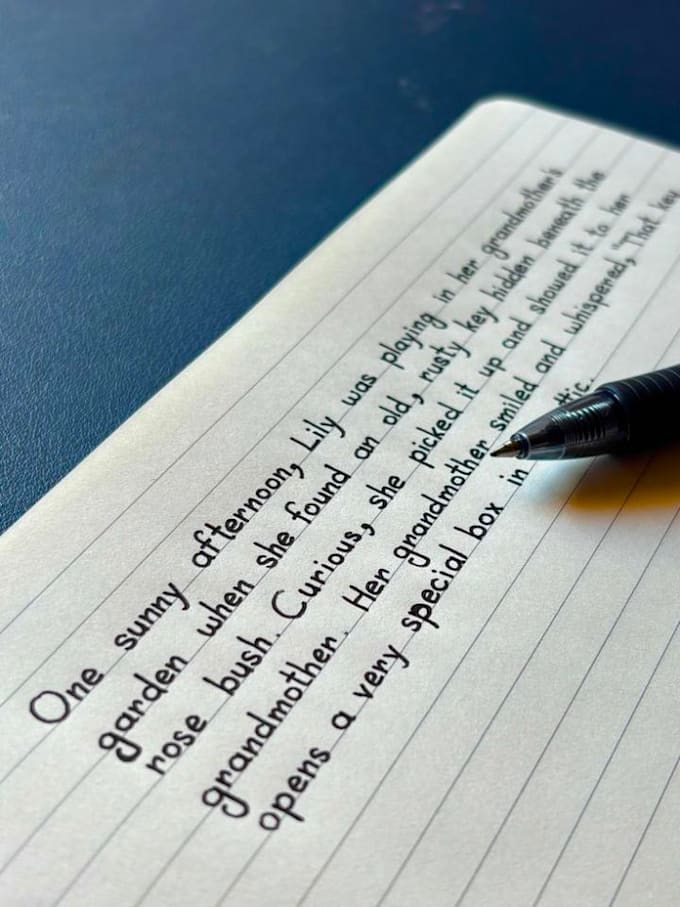 One sunny afternoon, Lily was playing in her grandmother's
garden when she found an old, rusty key hidden beneath the
rose bush. Curious, she picked it up and showed it to her
grandmother. Her grandmother smiled and whispered, "That key
opens a very special box in